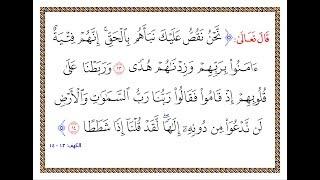 قَالَ تَعَالَىٰ: ﴿ نَّحْنُ نَقُصُّ عَلَيْكَ نَبَأَهُم بِالْحَقِّ ۚ إِنَّهُمْ فِتْيَةٌ
ءَامَنُوا۟ بِرَبِّهِمْ وَزِدْنَٰهُمْ هُدًى ١٣ وَرَبَطْنَا عَلَىٰ
قُلُوبِهِمْ إِذْ قَامُوا۟ فَقَالُوا۟ رَبُّنَا رَبُّ السَّمَٰوَٰتِ وَالْأَرْضِ
لَن نَّدْعُوَا۟ مِن دُونِهِۦٓ إِلَٰهًا ۖ لَّقَدْ قُلْنَآ إِذًا شَطَطًا ١٤ ﴾
الكهف: ١٣ - ١٤